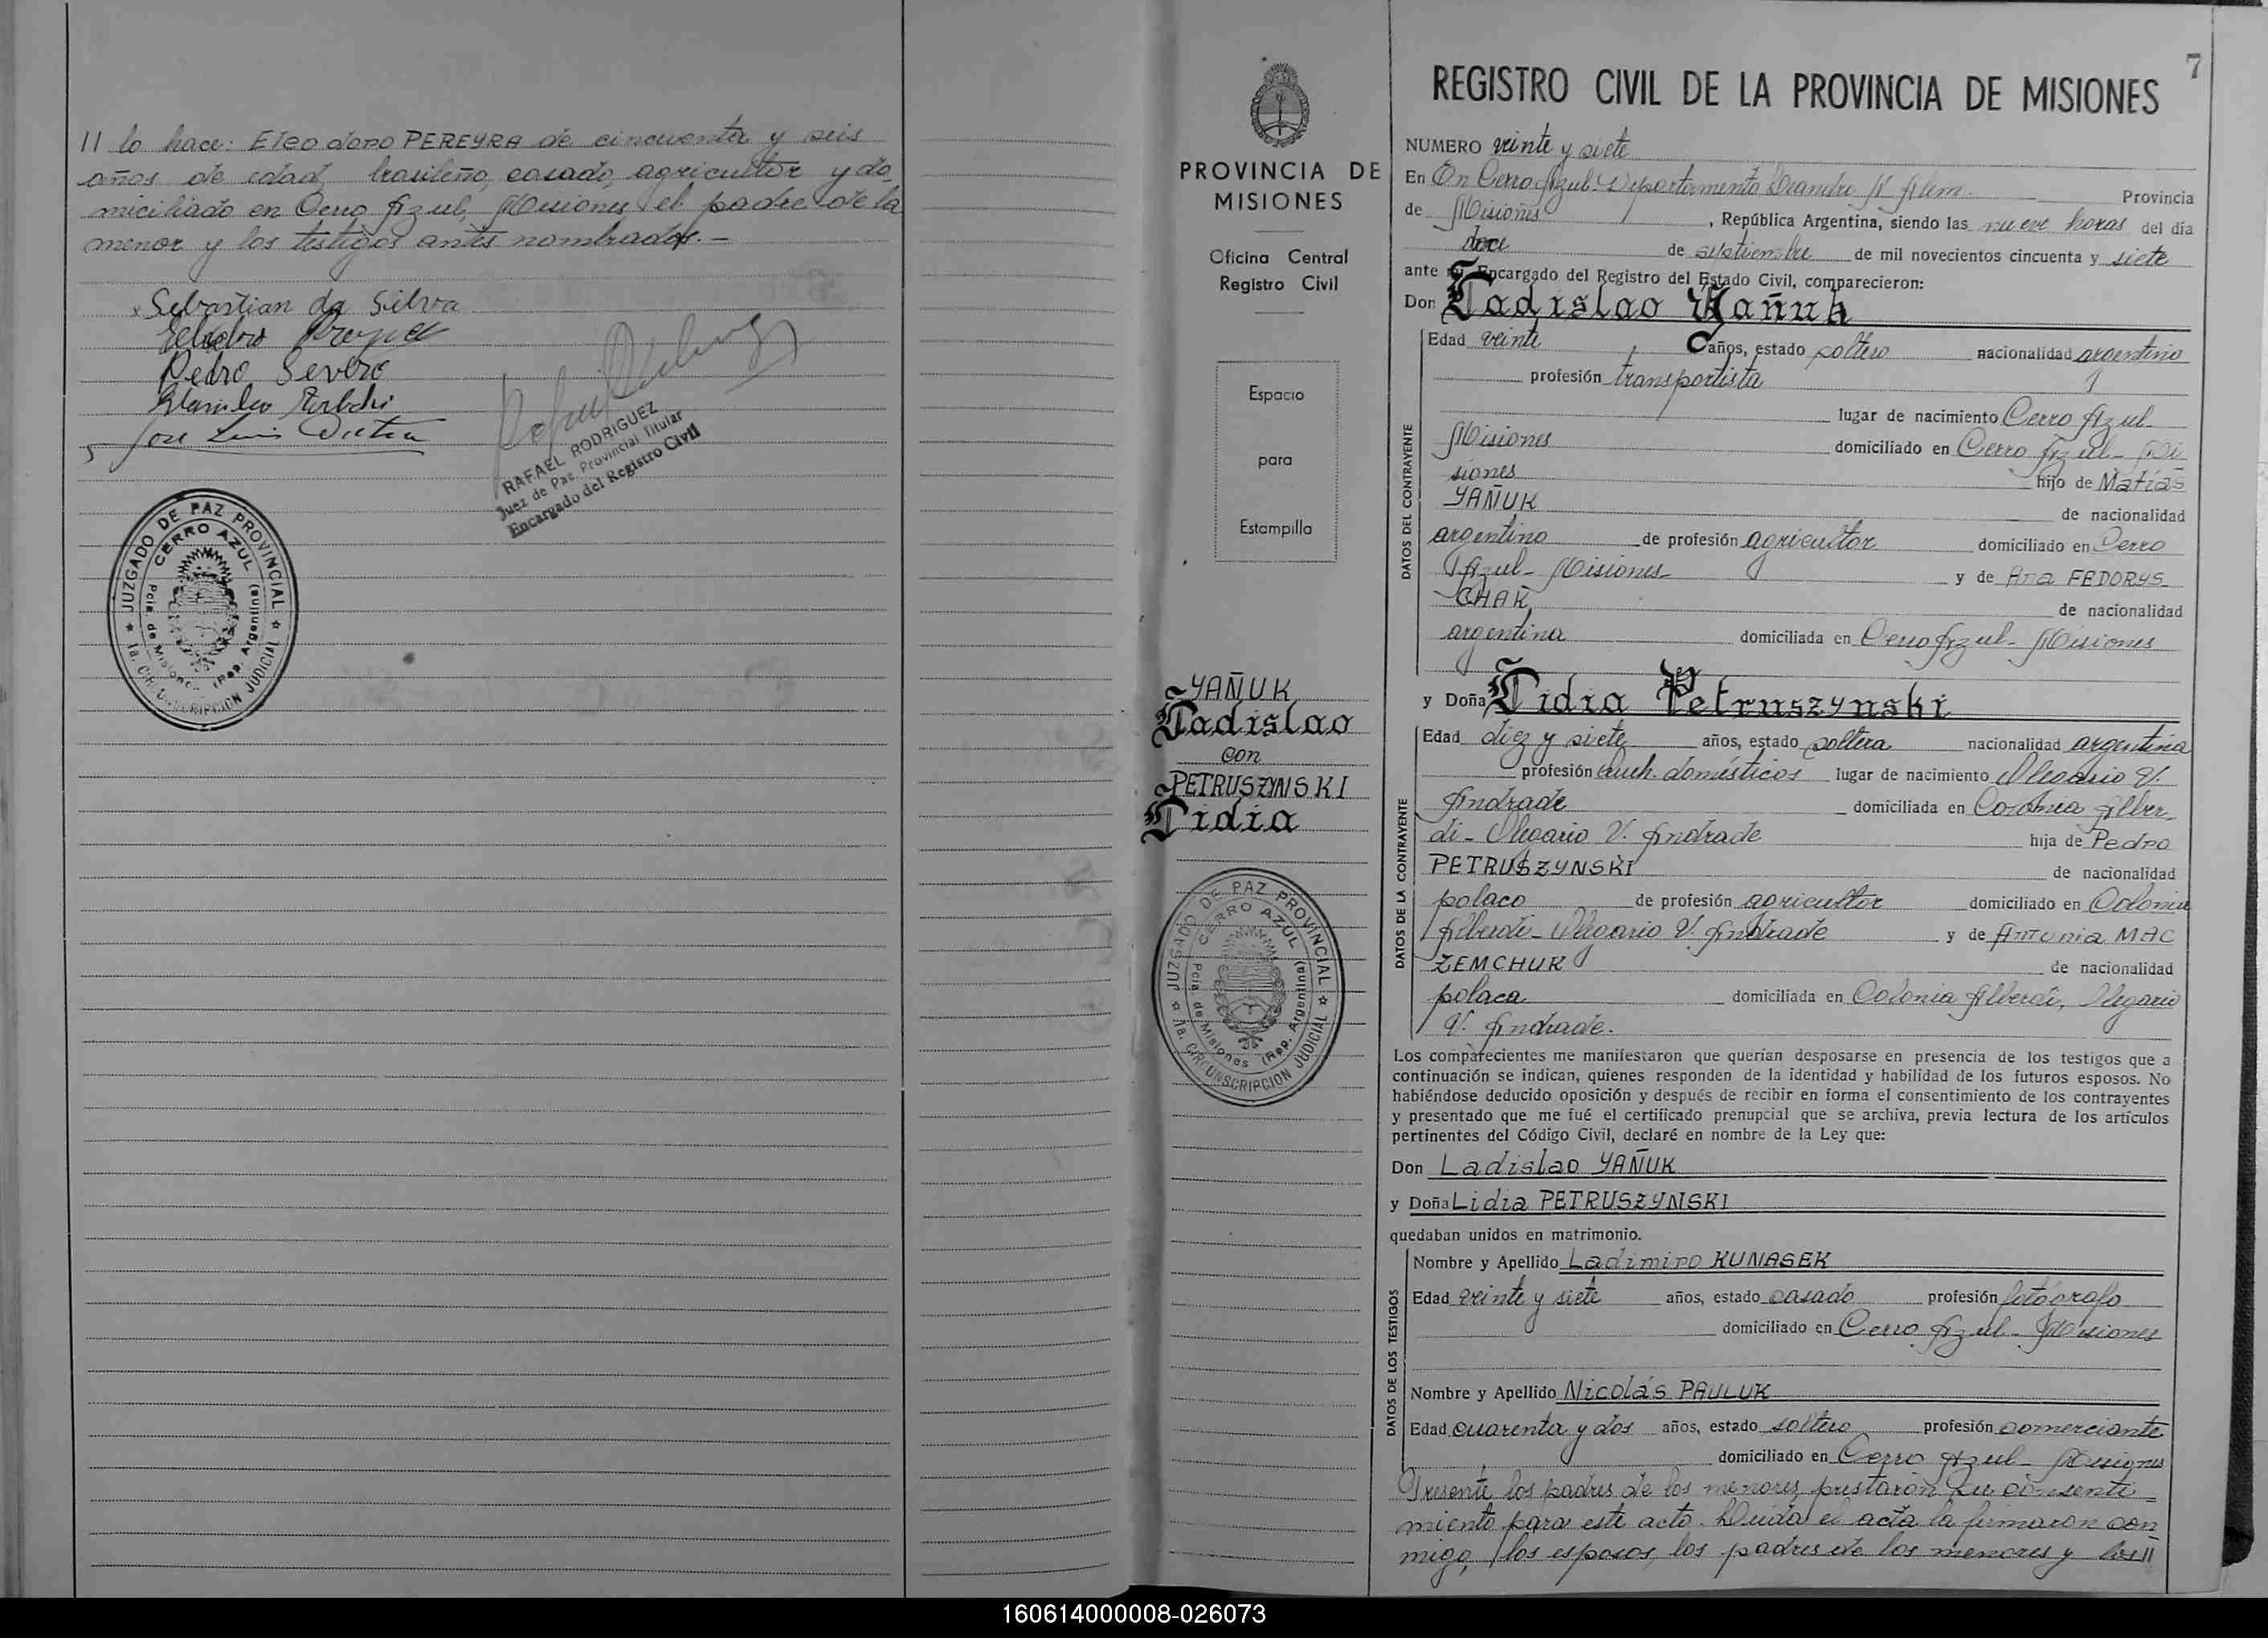 // lo hace: Eleodoro PEREYRA de cincuenta y seis
años de edad, brasileño, casado, agricultor y do
miciliado en Cerro Azul, Misiones el padre de la
menor y los testigos antes nombrados.-
Sebastian da Silva
Pedro Severo
RAFAEL RODRIGUEZ
Juez de Paz Provincial Titular
Encargado del Registro Civil
JUZGADO DE PAZ PROVINCIAL
CERRO AZUL
Pcia. de Misiones (Rep. Argentina)
1a. CIRCUNSCRIPCION JUDICIAL
PROVINCIA DE
MISIONES
Oficina Central
Registro Civil
Espacio
para
Estampilla
YAÑUK
Ladislao
con
PETRUSZYNSKI
Lidia
JUZGADO DE PAZ PROVINCIAL
CERRO AZUL
Pcia. de Misiones (Rep. Argentina)
1a. CIRCUNSCRIPCION JUDICIAL
7
REGISTRO CIVIL DE LA PROVINCIA DE MISIONES
NUMERO veinte y siete
En En Cerro Azul. Departamento Leandro N. Alem. Provincia
de Misiones, República Argentina, siendo las nueve horas del día
doce de septiembre de mil novecientos cincuenta y siete
ante mí Encargado del Registro del Estado Civil, comparecieron:
Don Ladislao Yañuk
Edad veinte años, estado soltero nacionalidad argentino
profesión transportista
lugar de nacimiento Cerro Azul
Misiones domiciliado en Cerro Azul - Mi
siones hijo de Matías
YAÑUK de nacionalidad
argentino de profesión agricultor domiciliado en Cerro
Azul - Misiones y de Ana FEDORYS
CHAK de nacionalidad
argentina domiciliada en Cerro Azul - Misiones
DATOS DEL CONTRAYENTE
y Doña Lidia Petruszynski
Edad diez y siete años, estado soltera nacionalidad argentina
profesión queh. domésticos lugar de nacimiento Olegario V.
Andrade domiciliada en Colonia Alber
di - Olegario V. Andrade hija de Pedro
PETRUSZYNSKI de nacionalidad
polaco de profesión agricultor domiciliado en Colonia
Alberdi - Olegario V. Andrade y de Antonia MAC
ZEMCHUK de nacionalidad
polaca domiciliada en Colonia Alberdi, Olegario
V. Andrade.
DATOS DE LA CONTRAYENTE
Los comparecientes me manifestaron que querían desposarse en presencia de los testigos que a
continuación se indican, quienes responden de la identidad y habilidad de los futuros esposos. No
habiéndose deducido oposición y después de recibir en forma el consentimiento de los contrayentes
y presentado que me fué el certificado prenupcial que se archiva, previa lectura de los artículos
pertinentes del Código Civil, declaré en nombre de la Ley que:
Don Ladislao YAÑUK
y Doña Lidia PETRUSZYNSKI
quedaban unidos en matrimonio.
Nombre y Apellido Ladimiro KUNASEK
Edad veinte y siete años, estado casado profesión fotógrafo
domiciliado en Cerro Azul - Misiones
Nombre y Apellido Nicolás PAULUK
Edad cuarenta y dos años, estado soltero profesión comerciante
domiciliado en Cerro Azul - Misiones
DATOS DE LOS TESTIGOS
Presente los padres de los menores prestaron su consenti
miento para este acto. Leída el acta la firmaron con
migo, los esposos, los padres de los menores y los //
160614000008-026073